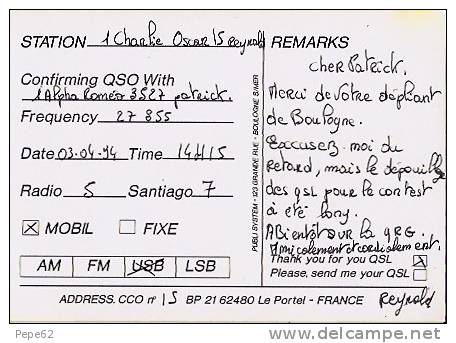 STATION 1 Charlie Oscar 15 Reynald
Confirming QSO With
1 Alpha Roméo 3527 patrick.
Frequency 27 855
Date 03-04-94 Time 14H15
Radio 5 Santiago 7
MOBIL FIXE
AM FM USB LSB
REMARKS
cher Patrick.
Merci de votre dépliant
de Boulogne.
Excusez-moi du
Retard, mais le dépouillage
des qsl pour le contest
à été long.
A Bientôt sur la QRG.
Amicalement et cordialement.
Thank you for you QSL
Please, send me your QSL
Reynald
ADDRESS. CCO n° 15 BP 21 62480 Le Portel - FRANCE
PUBLI SYSTEM - 123 GRANDE RUE - BOULOGNE S/MER
Pepe62
www.delcampe.net